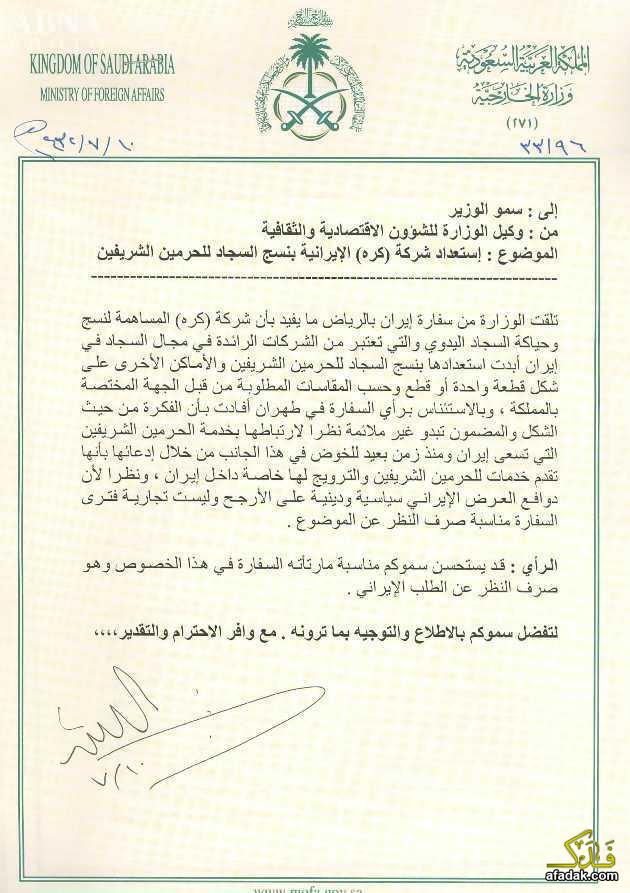 KINGDOM OF SAUDI ARABIA
MINISTRY OF FOREIGN AFFAIRS
المملكة العربية السعودية
وزارة الخارجية
(٢٧١)
٣٣/٩٦
٤٣٢/٧/١٠
إلى : سمو الوزير
من : وكيل الوزارة للشؤون الاقتصادية والثقافية
الموضوع : إستعداد شركة (كره) الإيرانية بنسج السجاد للحرمين الشريفين
تلقت الوزارة من سفارة إيران بالرياض ما يفيد بأن شركة (كره) المساهمة لنسج
وحياكة السجاد اليدوي والتي تعتبر من الشركات الرائدة في مجال السجاد في
إيران أبدت استعدادها بنسج السجاد للحرمين الشريفين والأماكن الأخرى على
شكل قطعة واحدة أو قطع وحسب المقاسات المطلوبة من قبل الجهة المختصة
بالمملكة ، وبالاستئناس برأي السفارة في طهران أفادت بأن الفكرة من حيث
الشكل والمضمون تبدو غير ملائمة نظرا لارتباطها بخدمة الحرمين الشريفين
التي تسعى إيران ومنذ زمن بعيد للخوض في هذا الجانب من خلال إدعائها بأنها
تقدم خدمات للحرمين الشريفين والترويج لها خاصة داخل إيران ، ونظرا لأن
دوافع العرض الإيراني سياسية ودينية على الأرجح وليست تجارية فترى
السفارة مناسبة صرف النظر عن الموضوع .
الرأي : قد يستحسن سموكم مناسبة مارتأته السفارة في هذا الخصوص وهو
صرف النظر عن الطلب الإيراني .
لتفضل سموكم بالاطلاع والتوجيه بما ترونه . مع وافر الاحترام والتقدير،،،،
٧/١٠
فدک
afadak.com
www.mofa.gov.sa